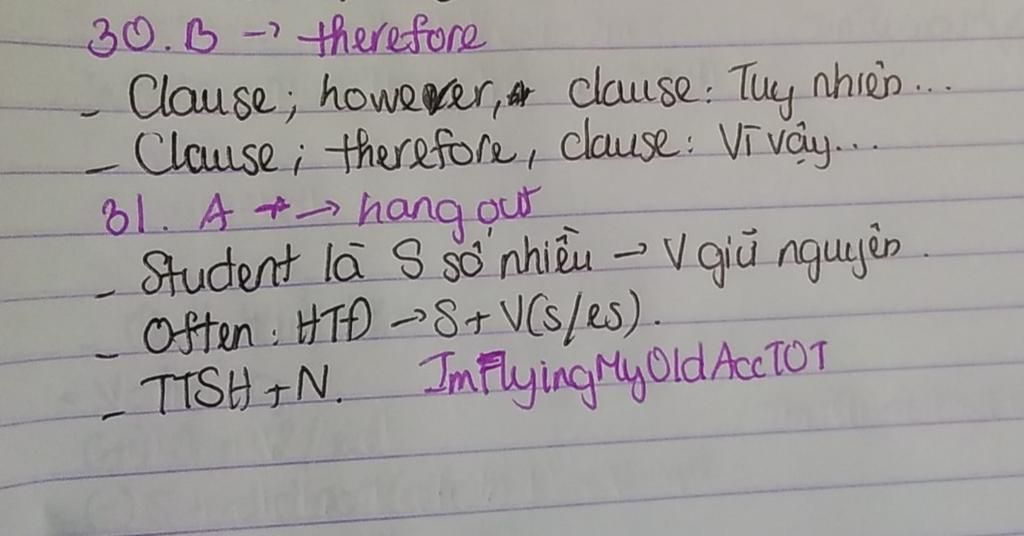 30. B → therefore
- Clause; however, clause: Tuy nhiên...
- Clause; therefore, clause: Vì vậy...
31. A → hang out
- Student là S số nhiều → V giữ nguyên.
- Often: HTĐ → S + V(s/es).
- TTSH + N. ImFlyingMyOldAccTOT